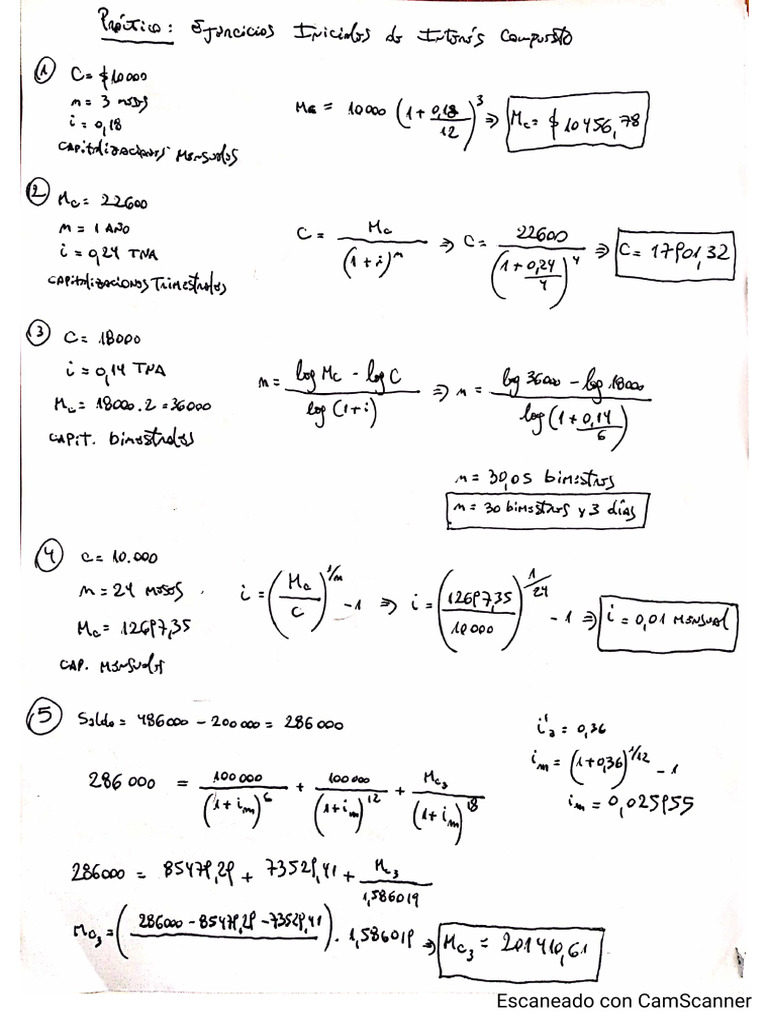 Práctica: Ejercicios Iniciales de Interés Compuesto
① C = $10000
n = 3 meses
i = 0,18
CAPITALIZACIONES MENSUALES
Mc = 10000 (1 + 0,18/12)^3 ⇒ Mc = $10456,78
② Mc = 22600
n = 1 AÑO
i = 0,24 TNA
CAPITALIZACIONES TRIMESTRALES
C = Mc/(1+i)^n ⇒ C = 22600/(1+0,24/4)^4 ⇒ C = 17901,32
③ C = 18000
i = 0,14 TNA
Mc = 18000.2 = 36000
CAPIT. bimestrales
n = (log Mc - log C)/log (1+i) ⇒ n = (log 36000 - log 18000)/log (1+0,14/6)
n = 30,05 bimestres
n = 30 bimestres y 3 días
④ C = 10.000
n = 24 meses
Mc = 12697,35
CAP. MENSUALES
i = (Mc/C)^1/n - 1 ⇒ i = (12697,35/10000)^1/24 - 1 ⇒ i = 0,01 MENSUAL
⑤ Saldo = 486000 - 200000 = 286000
i'a = 0,36
im = (1+0,36)^1/12 - 1
im = 0,025955
286000 = 100000/(1+im)^6 + 100000/(1+im)^12 + Mc3/(1+im)^18
286000 = 85749,29 + 73529,41 + Mc3/1,586019
Mc3 = (286000 - 85749,29 - 73529,41) . 1,586019 ⇒ Mc3 = 201410,61
Escaneado con CamScanner